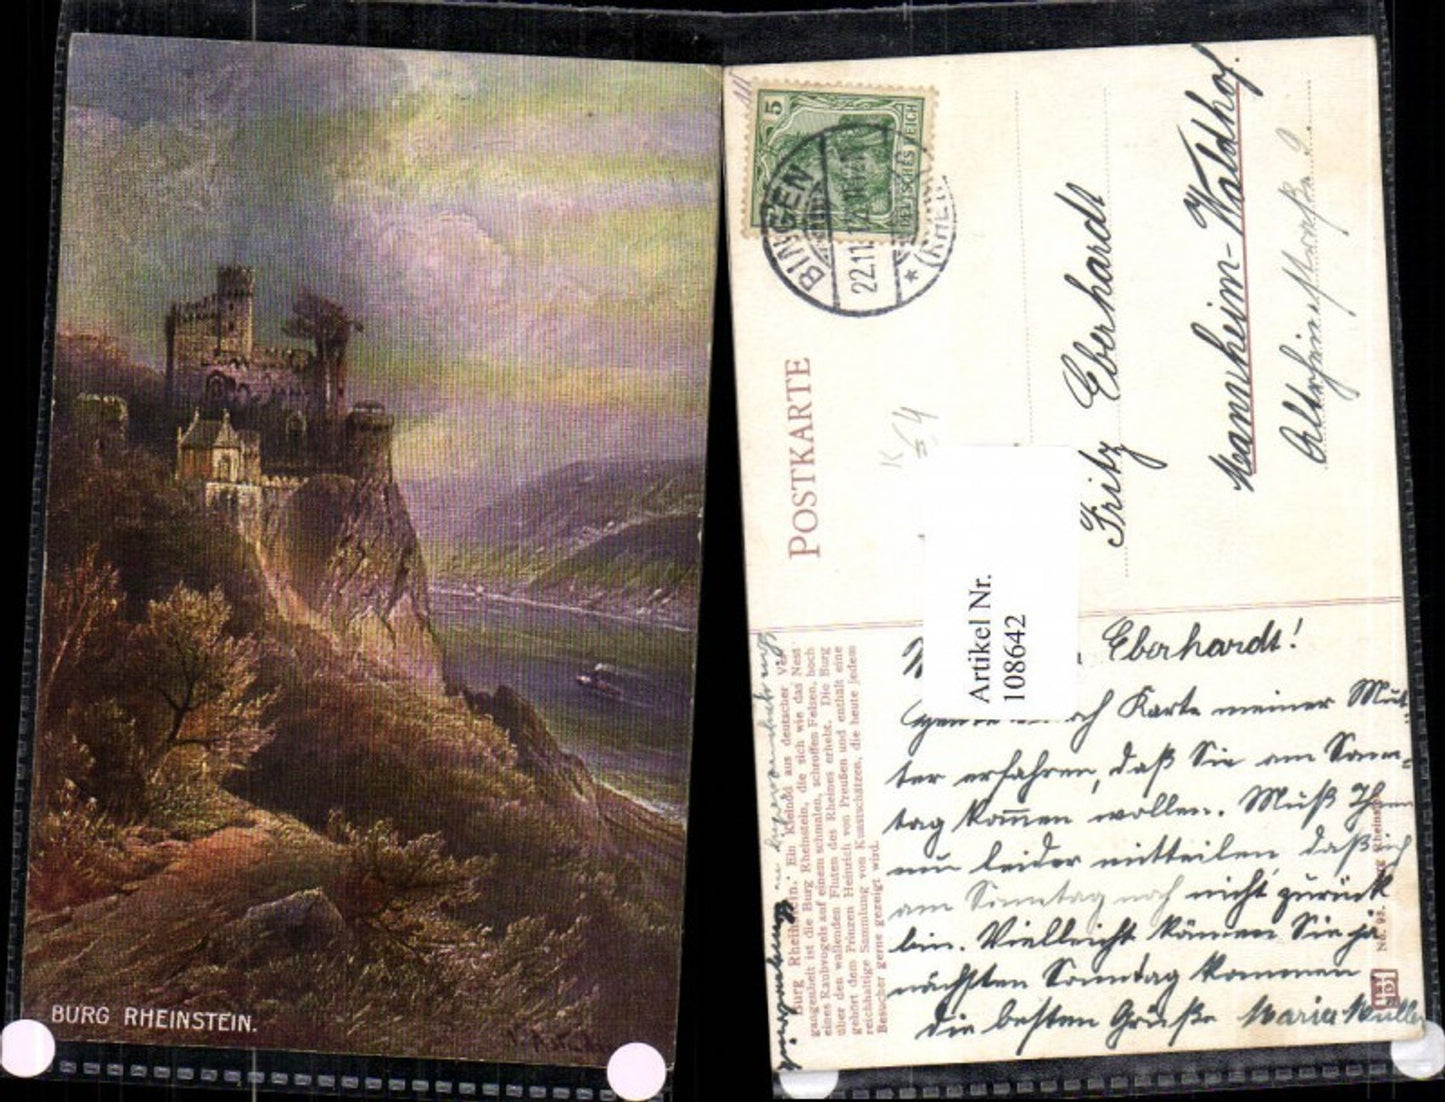 BURG RHEINSTEIN.
5
DEUTSCHES REICH
BINGEN
22.11
* (RHEIN)
POSTKARTE
K
64
Fritz Eberhardt
Mannheim-Waldhof.
Artikel Nr.
108642
Eberhardt!
durch Karte meiner Mut-
ter erfahren, daß Sie am Sonn-
tag kommen wollen. Muß Ihnen
nun leider mitteilen, daß ich
am Sonntag noch nicht zurück
bin. Vielleicht können Sie ja
nächsten Sonntag kommen
Die besten Grüße Maria Müller
Burg Rheinstein. Ein Kleinod aus deutscher Ver-
gangenheit ist die Burg Rheinstein, die sich wie das Nest
eines Raubvogels auf einem schmalen, schroffen Felsen, hoch
über den wallenden Fluten des Rheines erhebt. Die Burg
gehört dem Prinzen Heinrich von Preußen und enthält eine
reichhaltige Sammlung von Kunstschätzen, die heute jedem
Besucher gerne gezeigt wird.
No. 93. Burg Rheinstein